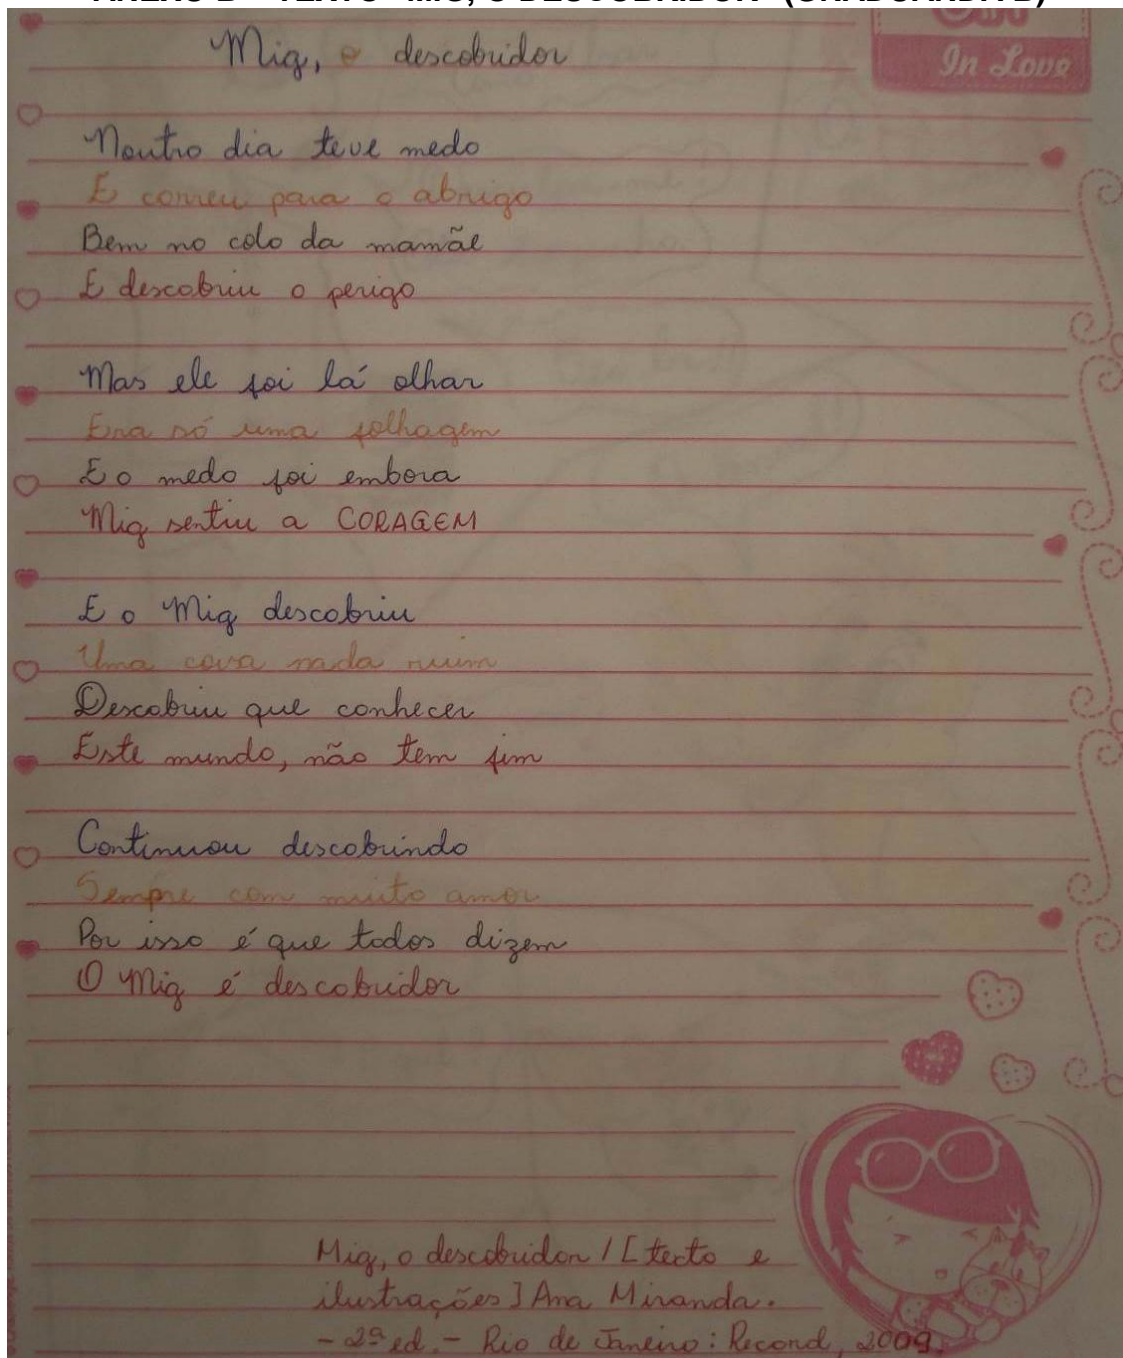 Mig, o descobridor
In Love
Noutro dia teve medo
E correu para o abrigo
Bem no colo da mamãe
E descobriu o perigo
Mas ele foi lá olhar
Era só uma folhagem
E o medo foi embora
Mig sentiu a CORAGEM
E o Mig descobriu
Uma coisa nada ruim
Descobriu que conhecer
Este mundo, não tem fim
Continuou descobrindo
Sempre com muito amor
Por isso é que todos dizem
O Mig é descobridor
Mig, o descobridor / [texto e
ilustrações] Ana Miranda.
- 2ª ed. - Rio de Janeiro: Record, 2009.